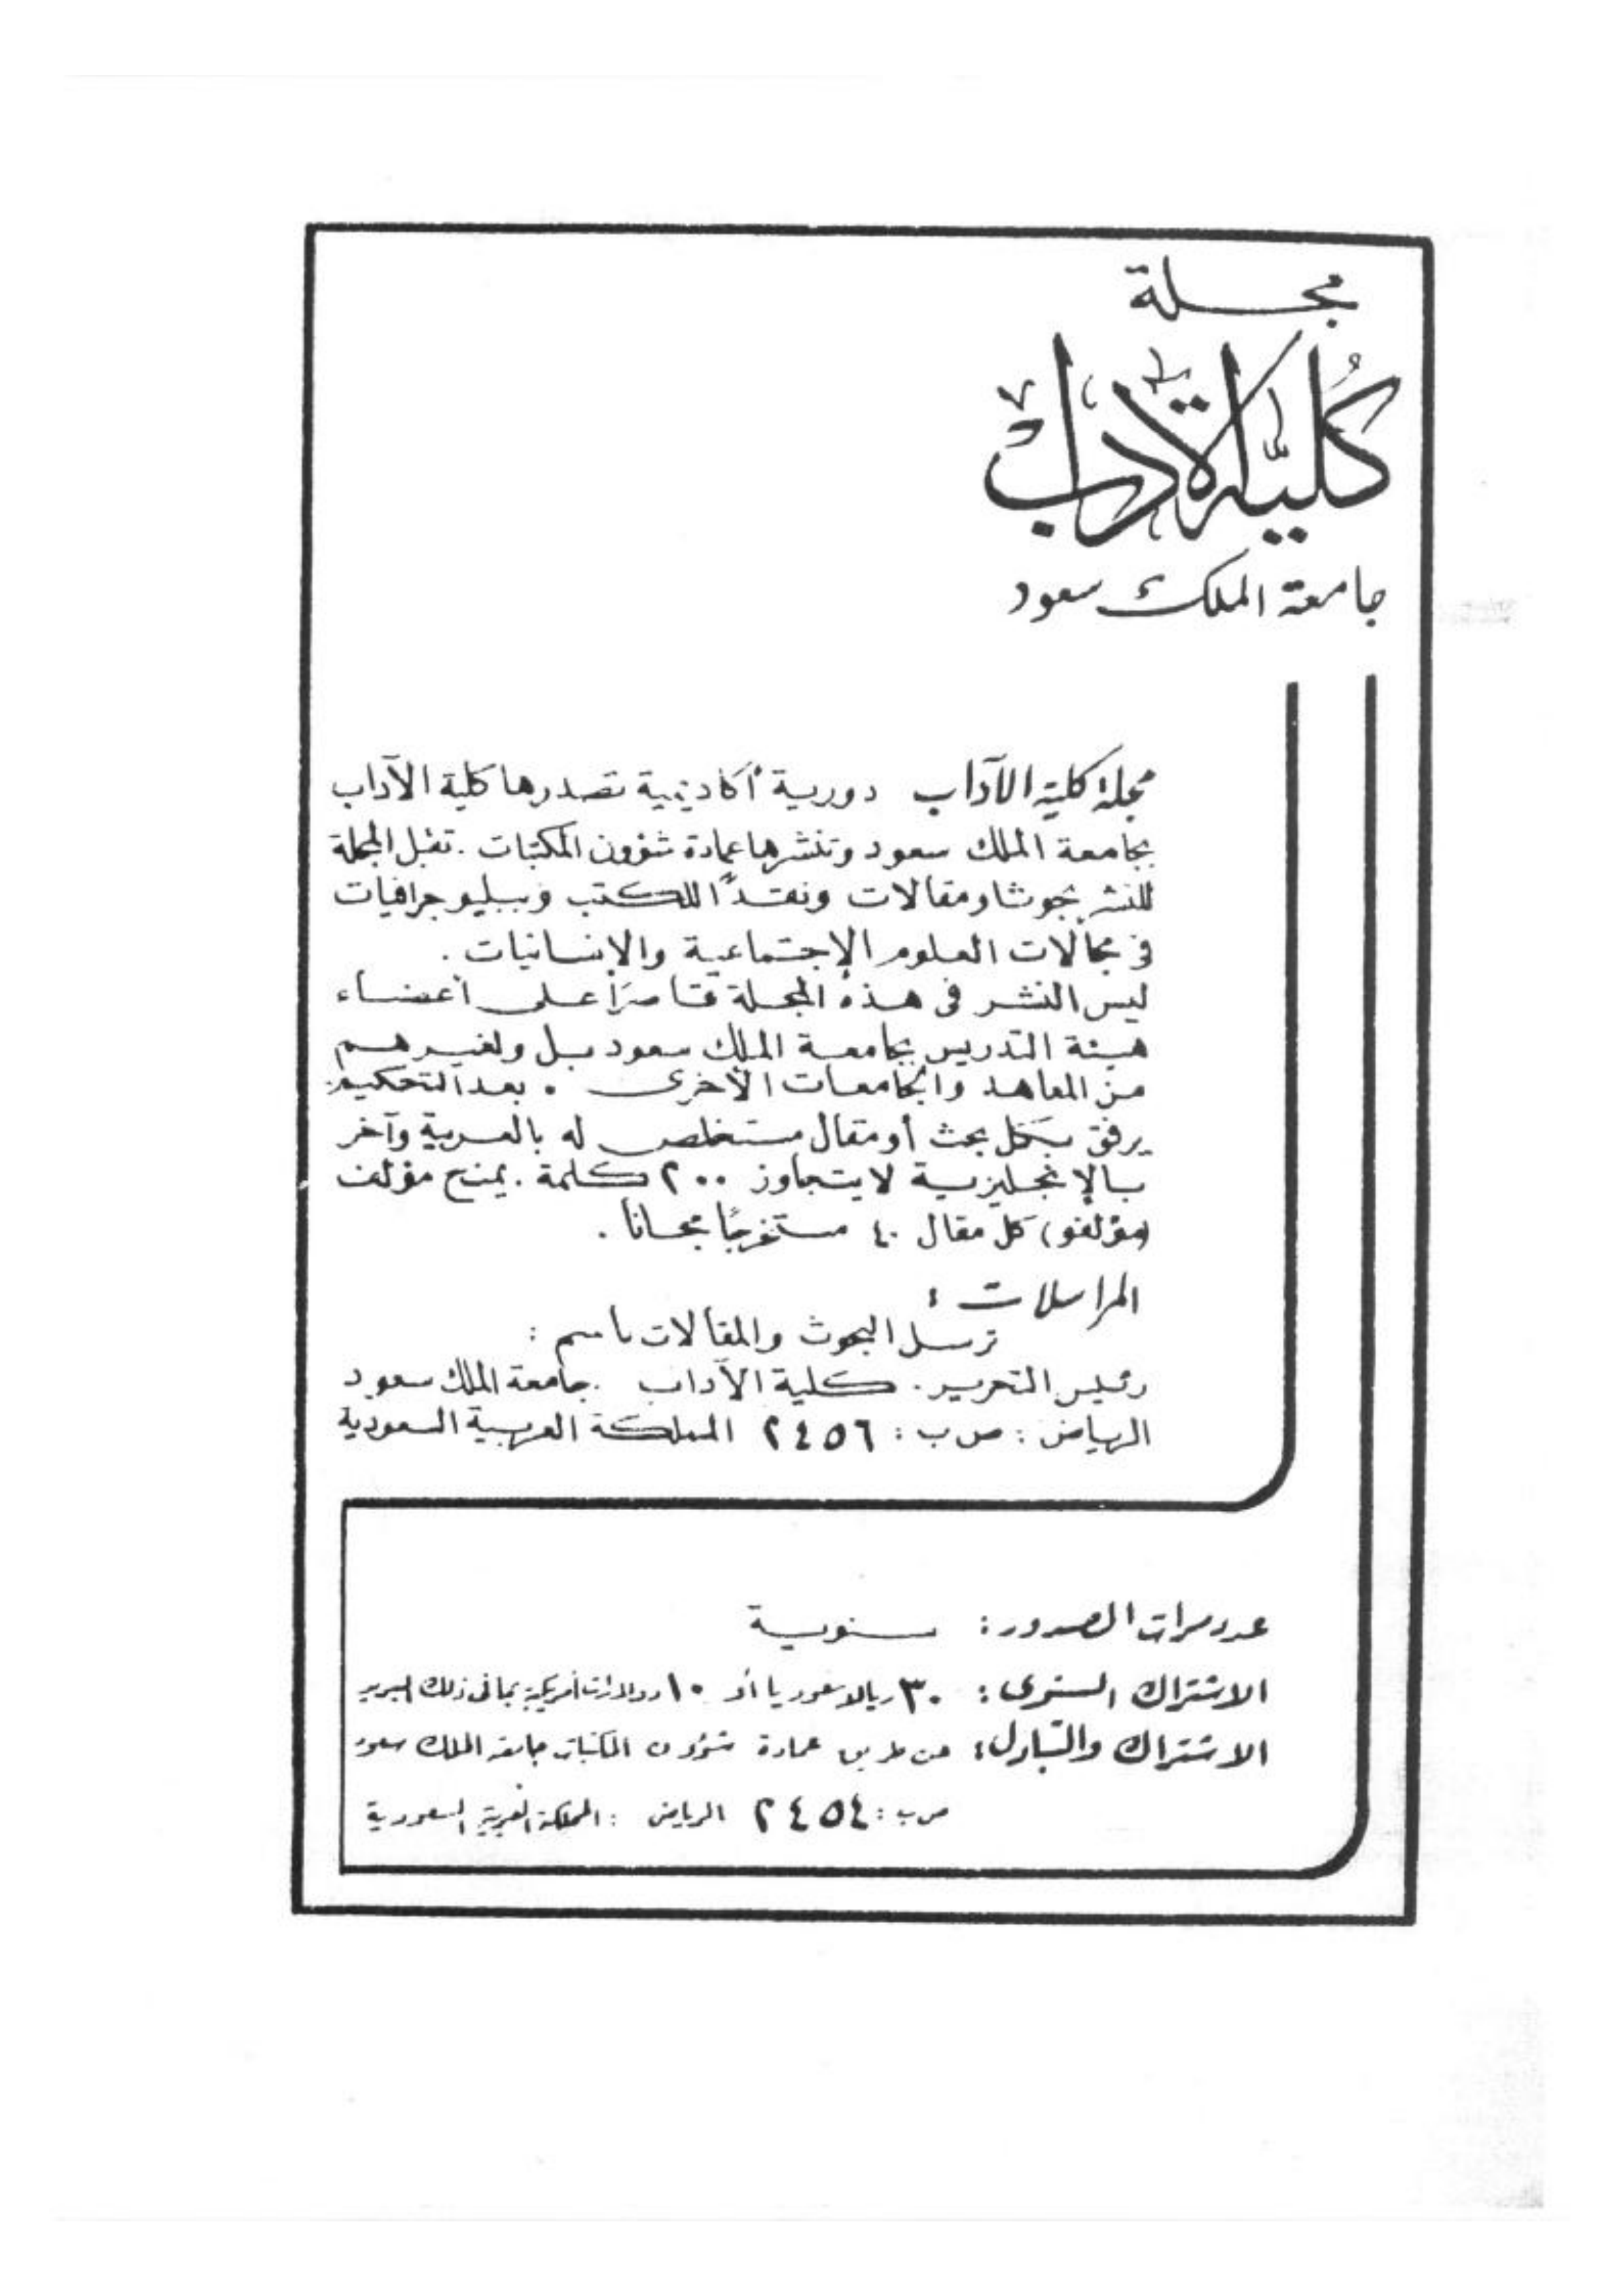 مجلة
كُليَّة الآداب
جامعة الملك سعود
مجلة كلية الآداب دورية أكاديمية تصدرها كلية الآداب
بجامعة الملك سعود وتنشرها عمادة شؤون المكتبات . تقبل المجلة
للنشر بحوثا ومقالات ونقدًا للكتب وببليوجرافيات
في مجالات العلوم الإجتماعية والإنسانيات .
ليس النشر في هذه المجلة قاصرًا على أعضاء
هيئة التدريس بجامعة الملك سعود بل ولغيرهم
من المعاهد والجامعات الأخرى . بعد التحكيم .
يرفق بكل بحث أو مقال مستخلص له بالعربية وآخر
بالإنجليزية لا يتجاوز ٢٠٠ كلمة . يمنح مؤلف
(مؤلفو) كل مقال ٤٠ مستخرجًا مجانا .
المراسلات :
ترسل البحوث والمقالات باسم :
رئيس التحرير . كلية الآداب . جامعة الملك سعود
الرياض : ص ب : ٢٤٥٦ المملكة العربية السعودية
عدد مرات الصدور : سنوية
الاشتراك السنوى : ٣٠ ريالا سعوديا أو ١٠ دولارات أمريكية بما في ذلك البريد
الاشتراك والتبادل : عن طريق عمادة شؤون المكتبات جامعة الملك سعود
ص ب : ٢٤٥٤ الرياض : المملكة العربية السعودية